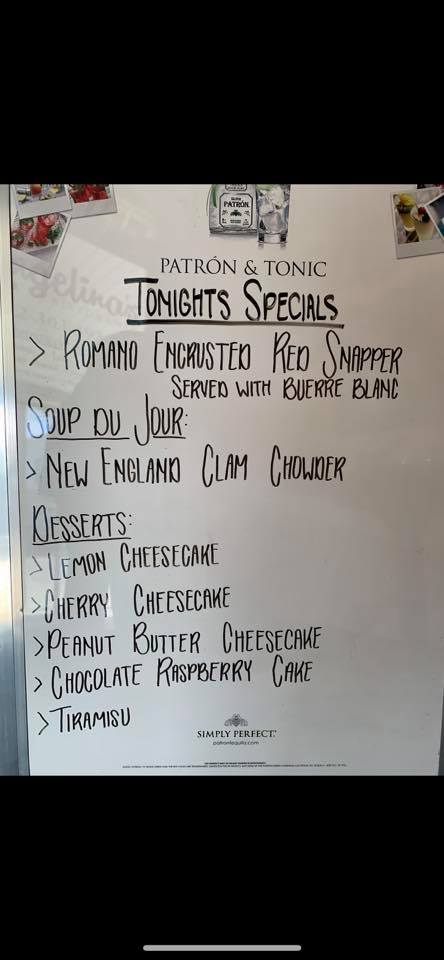 PATRÓN
PATRÓN & TONIC
TONIGHTS SPECIALS
> ROMANO ENCRUSTED RED SNAPPER
SERVED WITH BUERRE BLANC
SOUP DU JOUR:
> NEW ENGLAND CLAM CHOWDER
DESSERTS:
> LEMON CHEESECAKE
> CHERRY CHEESECAKE
> PEANUT BUTTER CHEESECAKE
> CHOCOLATE RASPBERRY CAKE
> TIRAMISU
SIMPLY PERFECT.
patrontequila.com